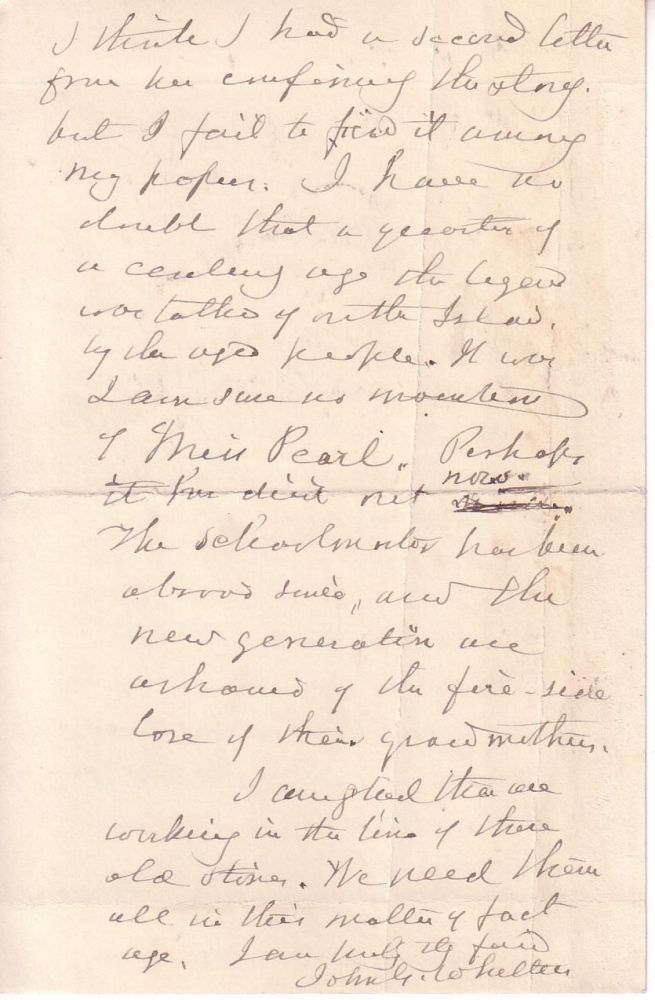 I think I had a second letter
from her confirming the story.
but I fail to find it among
my papers. I have no
doubt that a quarter of
a century ago the legend
was talked of on the Island,
by the aged people. It was
I am sure no invention
of Miss Pearl. Perhaps
it has died out now.
The schoolmaster has been
abroad since, and the
new generation are
ashamed of the fire-side
lore of their grandmothers.
I am glad thou are
working in the line of these
old stories. We need them
all in this matter of fact
age. I am truly thy friend
John G. Whittier